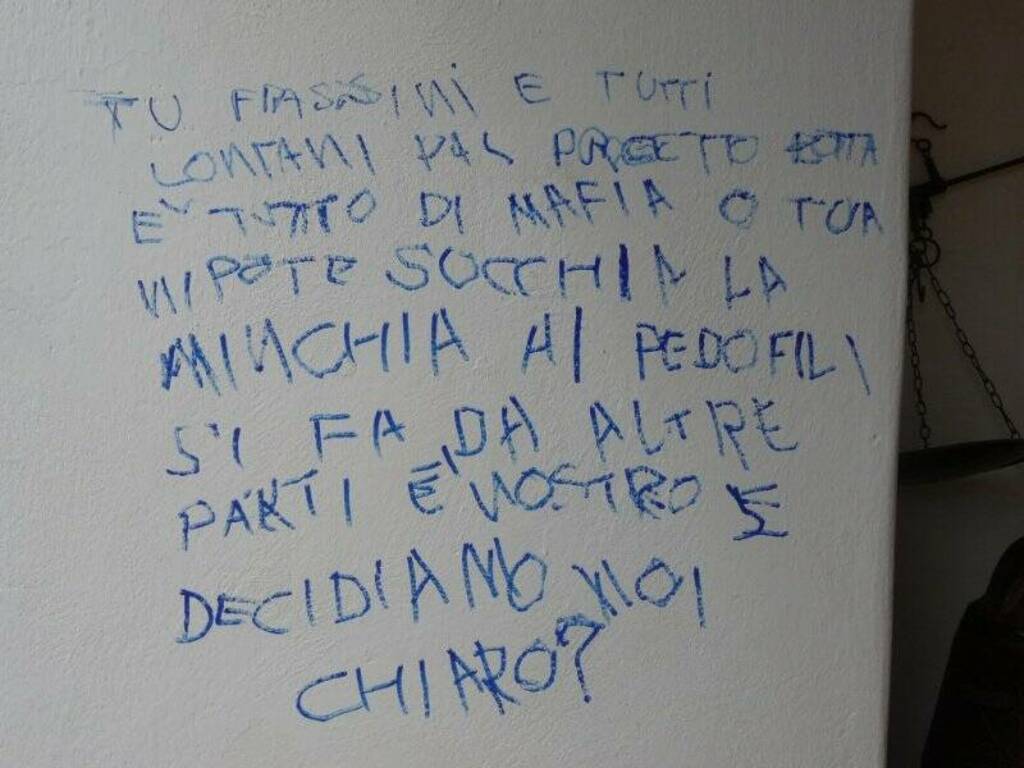 TU FRASSINI E TUTTI
LONTANI DAL PROGETTO
E' TUTTO DI MAFIA O TUA
NIPOTE SUCCHIA LA
MINCHIA AI PEDOFILI
SI FA DA ALTRE
PARTI E' NOSTRO E
DECIDIAMO NOI
CHIARO?